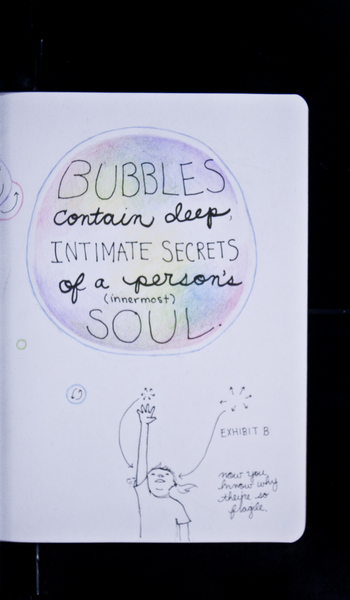 BUBBLES
contain deep,
INTIMATE SECRETS
of a person's
(innermost)
SOUL.
EXHIBIT B
now you
know why
they're so
fragile.